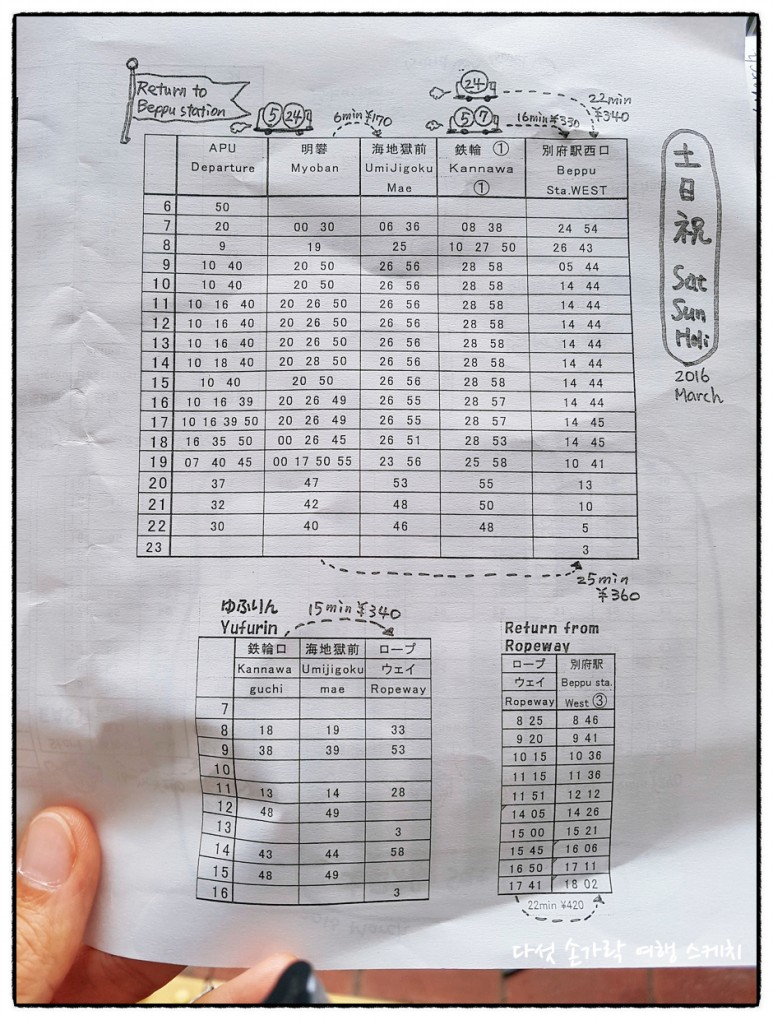 Return to
Beppu station
5 24
6min ¥170
24
5 7
16min ¥330
22min
¥340
APU 明礬 海地獄前 鉄輪 ① 別府駅西口
Departure Myoban UmiJigoku Kannawa Beppu
Mae ① Sta.WEST
6 50
7 20 00 30 06 36 08 38 24 54
8 9 19 25 10 27 50 26 43
9 10 40 20 50 26 56 28 58 05 44
10 10 40 20 50 26 56 28 58 14 44
11 10 16 40 20 26 50 26 56 28 58 14 44
12 10 16 40 20 26 50 26 56 28 58 14 44
13 10 16 40 20 26 50 26 56 28 58 14 44
14 10 18 40 20 28 50 26 56 28 58 14 44
15 10 40 20 50 26 56 28 58 14 44
16 10 16 39 20 26 49 26 55 28 57 14 44
17 10 16 39 50 20 26 49 26 55 28 57 14 45
18 16 35 50 00 26 45 26 51 28 53 14 45
19 07 40 45 00 17 50 55 23 56 25 58 10 41
20 37 47 53 55 13
21 32 42 48 50 10
22 30 40 46 48 5
23 3
25min
¥360
土
日
祝
Sat
Sun
Holi
2016
March
ゆふりん
Yufurin
15min ¥340
鉄輪口 海地獄前 ロープ
Kannawa Umijigoku ウェイ
guchi mae Ropeway
7
8 18 19 33
9 38 39 53
10
11 13 14 28
12 48 49
13 3
14 43 44 58
15 48 49
16 3
Return from
Ropeway
ロープ 別府駅
ウェイ Beppu sta.
Ropeway West ③
8 25 8 46
9 20 9 41
10 15 10 36
11 15 11 36
11 51 12 12
14 05 14 26
15 00 15 21
15 45 16 06
16 50 17 11
17 41 18 02
22min ¥420
다섯 손가락 여행 스케치